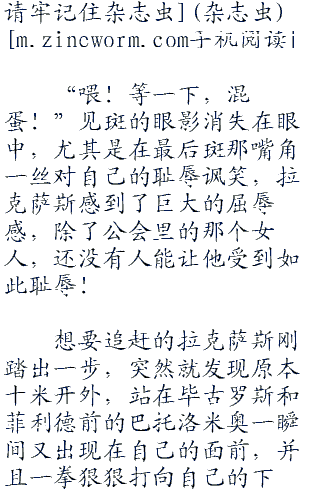 请牢记住杂志虫](杂志虫)
[m.zincworm.com手机阅读]
“喂！等一下，混
蛋！”见斑的眼影消失在眼
中，尤其是在最后斑那嘴角
一丝对自己的耻辱讽笑，拉
克萨斯感到了巨大的屈辱
感，除了公会里的那个女
人，还没有人能让他受到如
此耻辱！
想要追赶的拉克萨斯刚
踏出一步，突然就发现原本
十米开外，站在毕古罗斯和
菲利德前的巴托洛米奥一瞬
间又出现在自己的面前，并
且一拳狠狠打向自己的下